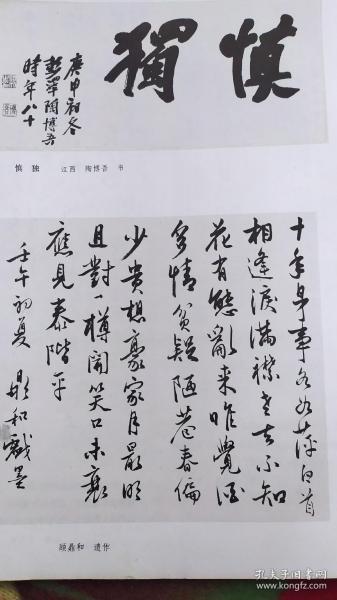 慎獨
庚申初冬
彭澤陶博吾
時年八十
慎 独 江西 陶博吾 书
十年身事各如萍白首
相逢淚滿襟老去不知
花有態亂來唯覺酒
多情貧疑陋巷春偏
少貴想豪家月最明
且對一樽開笑口未衰
應見泰階平
壬午初夏 鼎和戲墨
顾鼎和 遗作
孔夫子旧书网